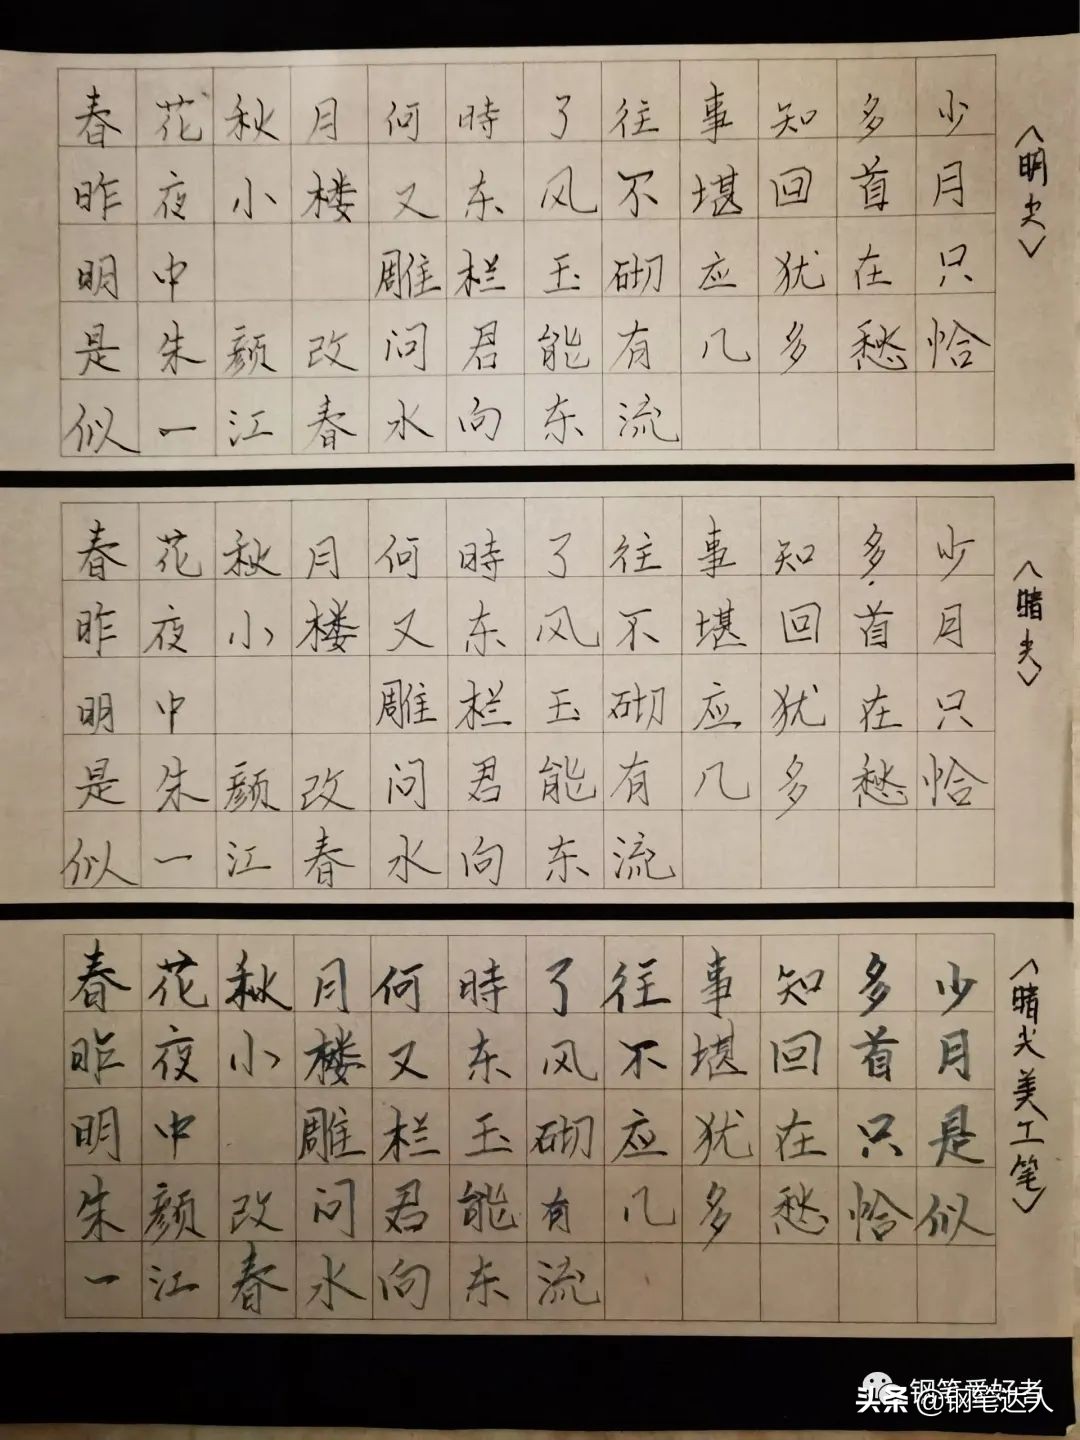 春花秋月何時了往事知多少
昨夜小楼又东风不堪回首月
明中 雕栏玉砌应犹在只
是朱颜改问君能有几多愁恰
似一江春水向东流
〈明尖〉
春花秋月何時了往事知多少
昨夜小楼又东风不堪回首月
明中 雕栏玉砌应犹在只
是朱颜改问君能有几多愁恰
似一江春水向东流
〈暗尖〉
春花秋月何時了往事知多少
昨夜小楼又东风不堪回首月
明中 雕栏玉砌应犹在只是
朱颜改问君能有几多愁恰似
一江春水向东流
〈暗尖美工笔〉
钢笔愛好者
头条 @钢笔达人